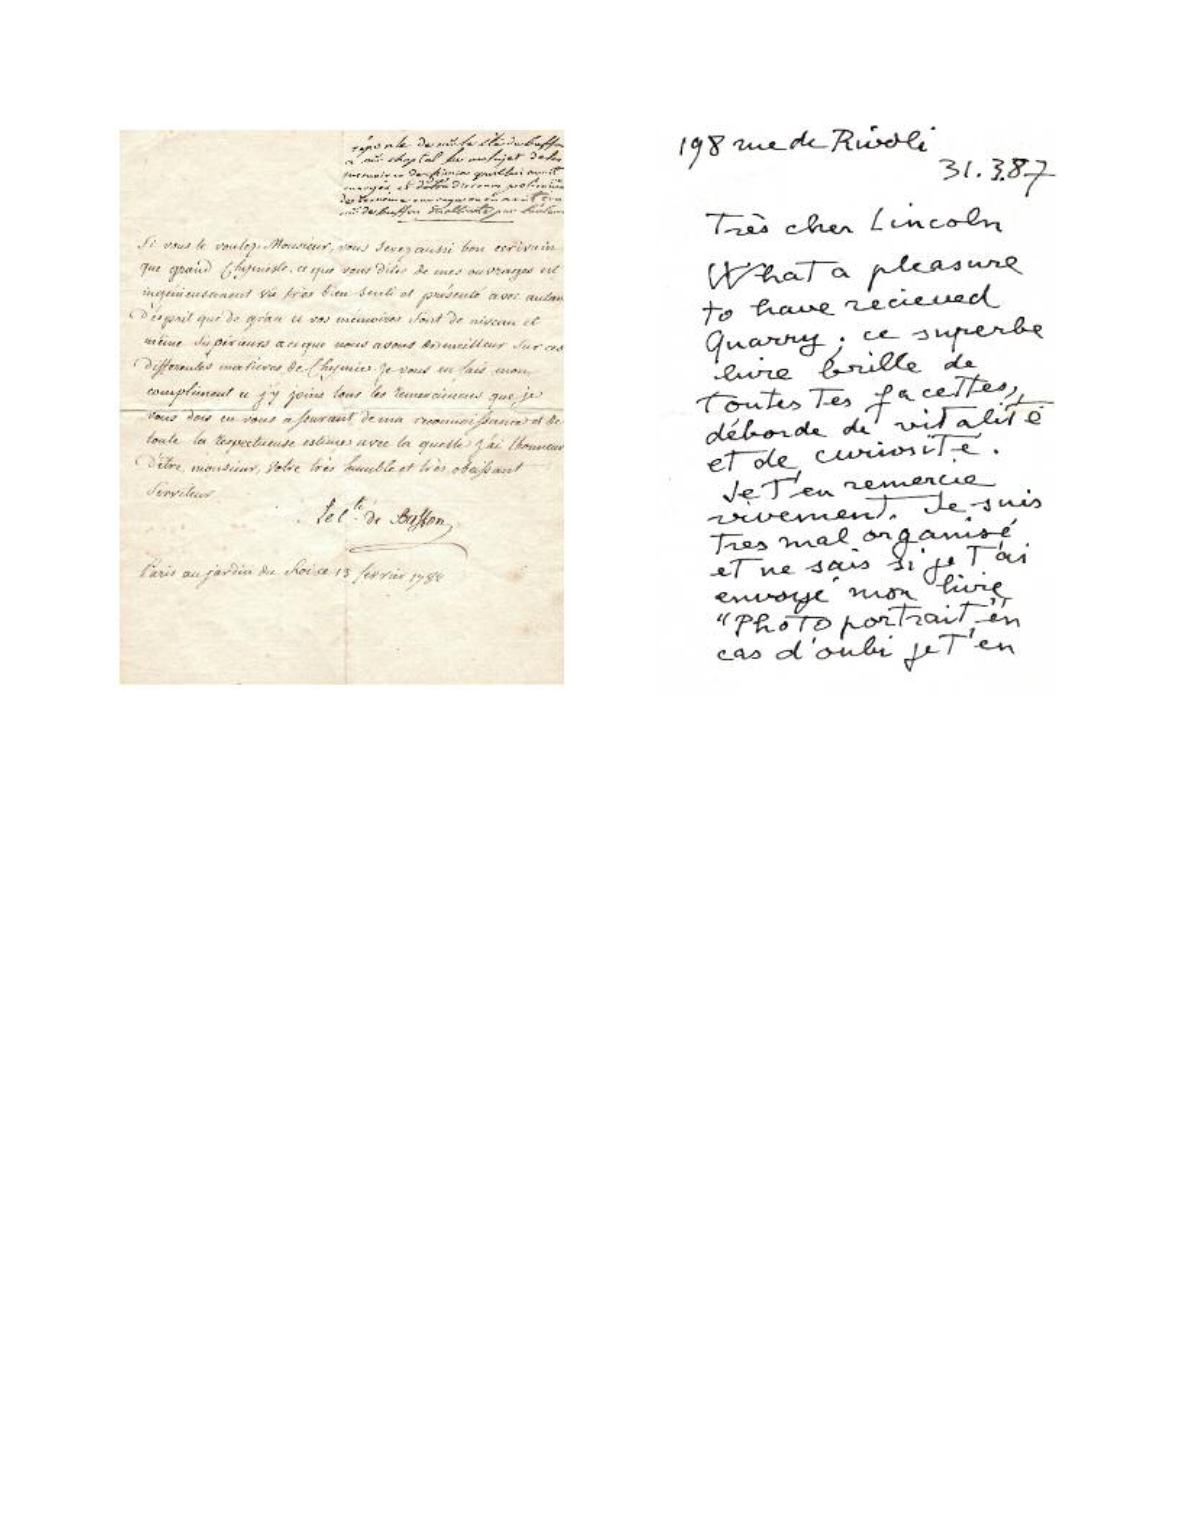 réponse de mr le cte de buffon
a mr chaptal au sujet de
memoires de qu'il lui avoit
envoyés et de son discours
mr de buffon
Si vous le voulez Monsieur, vous serez aussi bon ecrivain
que grand Chymiste, ce que vous dites de mes ouvrages est
ingenieusement vu très bien senti et présenté avec autan
D'esprit que de grâce et vos mémoires sont de niveau et
même Supérieurs a ce que nous avons de meilleur Sur ces
differentes matieres de Chymie. Je vous en fais mon
compliment et j'y joins tous les remerciemens que je
vous dois en vous assurant de ma reconnoissance et de
toute la respectueuse estime avec la quelle j'ai l'honneur
D'être, monsieur, Votre très humble et très obeissant
Serviteur
Le cte. de Buffon
Paris au jardin du Roi ce 13 fevrier
198 rue de Rivoli
31.3.87
Très cher Lincoln
What a pleasure
to have recieved
Quarry ; ce superbe
livre brille de
toutes tes facettes,
déborde de vitalité
et de curiosité.
Je t'en remercie
vivement. Je suis
très mal organisé
et ne sais si je t'ai
envoyé mon livre
"Photoportrait" en
cas d'oubi je t'en